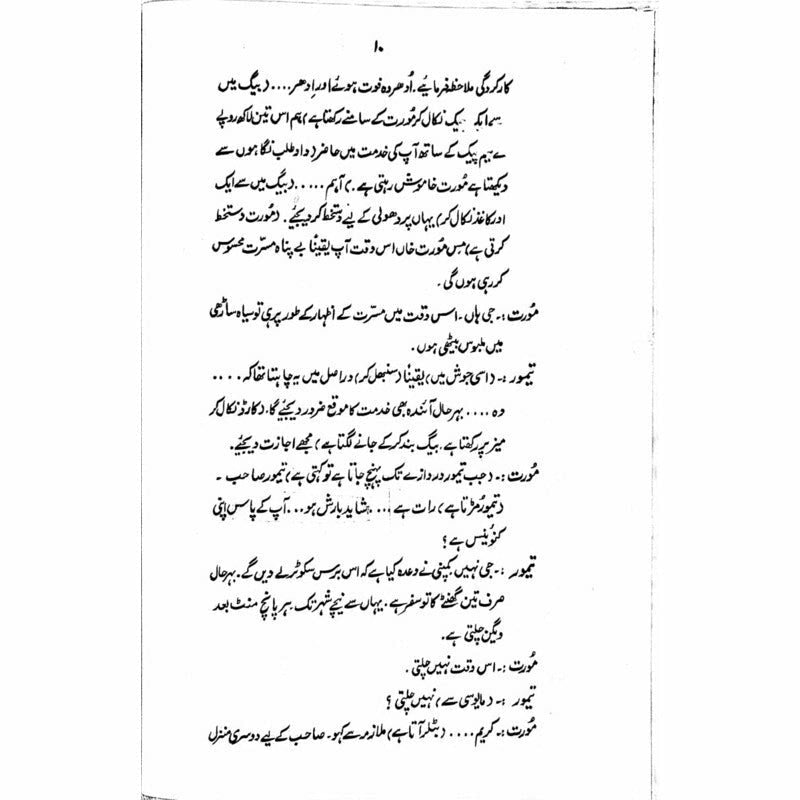 ۱۰
کارکردگی ملاحظہ فرمایئے۔ اُدھر وہ فوت ہوئے اور اِدھر.... (بیگ میں
سے ایک چیک نکال کر مُورت کے سامنے رکھتا ہے) ہم اس تین لاکھ روپے
کے ساتھ آپ کی خدمت میں حاضر (داد طلب نگاہوں سے
دیکھتا ہے مُورت خاموش رہتی ہے۔) آہم ..... (بیگ میں سے ایک
اور کاغذ نکال کر) یہاں پر وصولی کے لیے دستخط کر دیجئے۔ (مُورت دستخط
کرتی ہے) مِس مُورت خاں اس وقت آپ یقیناً بے پناہ مسرّت محسوس
کر رہی ہوں گی۔
مُورت :۔ جی ہاں ۔ اس وقت میں مسرّت کے اظہار کے طور پر ہی تو سیاہ ساڑھی
میں ملبوس بیٹھی ہوں۔
تیمور :۔ (اسی جوش میں) یقیناً (سنبھل کر) دراصل میں یہ چاہتا تھا کہ ....
وہ .... بہرحال آئندہ بھی خدمت کا موقع ضرور دیجئے گا۔ (کارڈ نکال کر
میز پر رکھتا ہے۔ بیگ بند کر کے جانے لگتا ہے) مجھے اجازت دیجئے۔
مُورت :۔ (جب تیمور دروازے تک پہنچ جاتا ہے تو کہتی ہے) تیمور صاحب ۔
(تیمور مُڑتا ہے) رات ہے .... شاید بارش ہو ... آپ کے پاس اپنی
کنوینس ہے؟
تیمور :۔ جی نہیں کمپنی نے وعدہ کیا ہے کہ اس برس سکوٹر لے دیں گے۔ بہرحال
صرف تین گھنٹے کا تو سفر ہے۔ یہاں سے نیچے شہر تک ہر پانچ منٹ بعد
ویگن چلتی ہے۔
مُورت :۔ اس وقت نہیں چلتی ۔
تیمور :۔ (مایوسی سے) نہیں چلتی ؟
مُورت :۔ کریم .... (بٹلر آتا ہے) ملازمہ سے کہو۔ صاحب کے لیے دوسری منزل